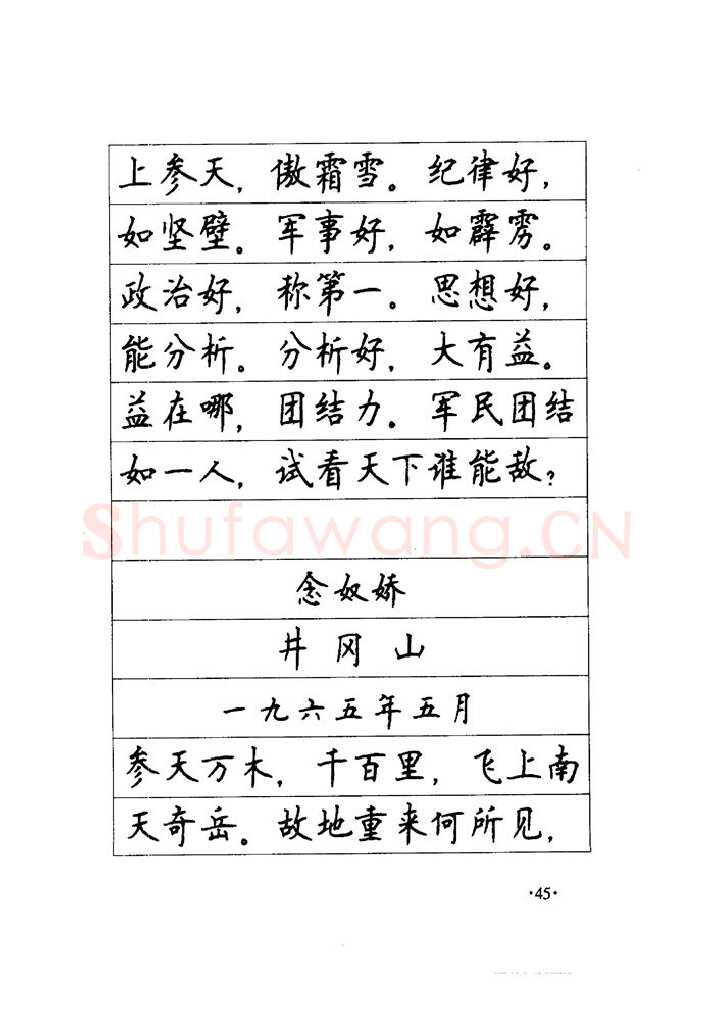 上参天，傲霜雪。纪律好，
如坚壁。军事好，如霹雳。
政治好，称第一。思想好，
能分析。分析好，大有益。
益在哪，团结力。军民团结
如一人，试看天下谁能敌？
Shufawang.CN
念奴娇
井冈山
一九六五年五月
参天万木，千百里，飞上南
天奇岳。故地重来何所见，
·45·